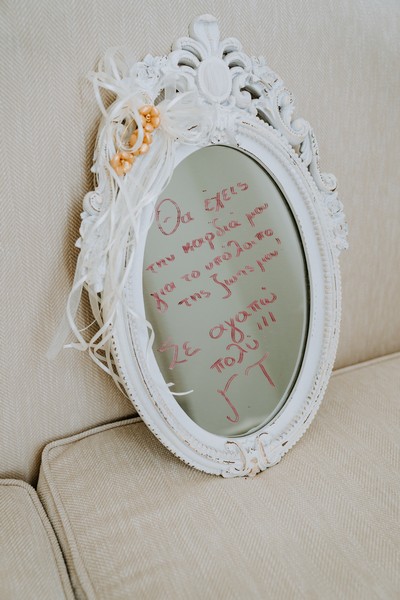 Θα έχεις
την καρδιά μου
για το υπόλοιπο
της ζωής μου,
Σε αγαπώ
πολύ!!!
γΤ